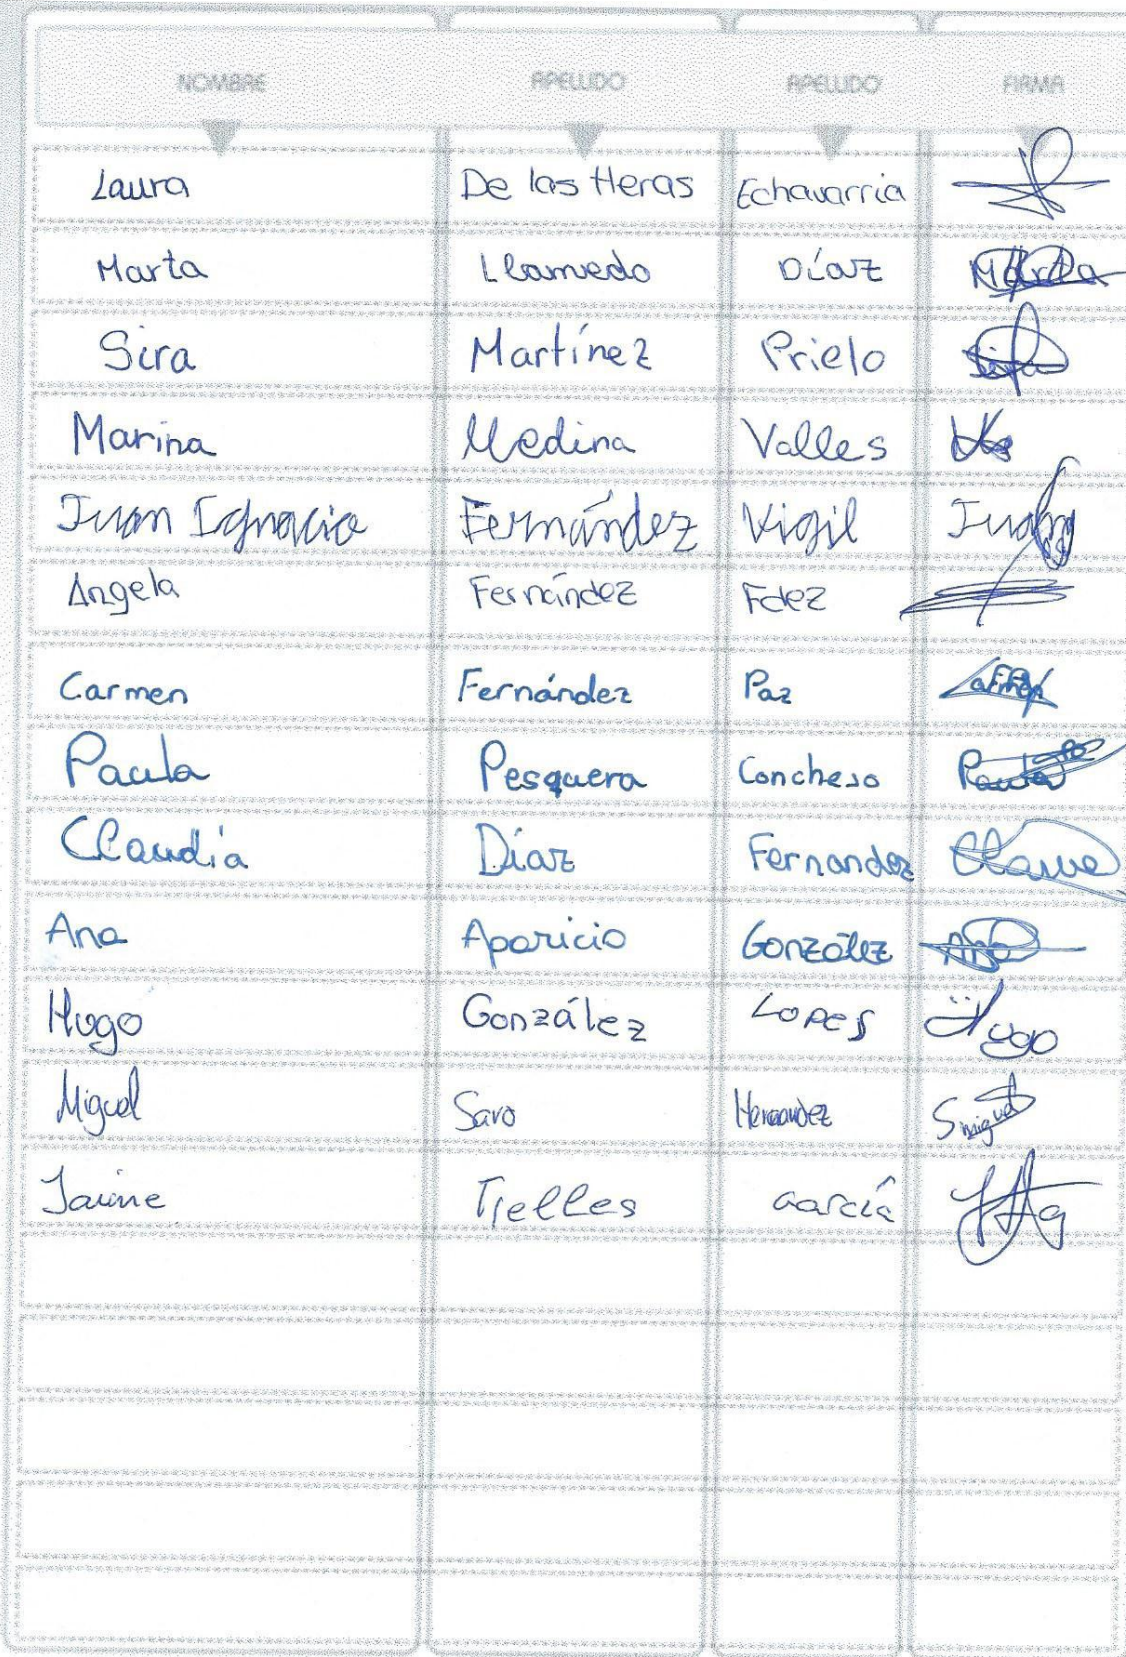 NOMBRE APELLIDO APELLIDO FIRMA
Laura De las Heras Echavarria
Marta Llamedo Díaz Marta
Sira Martínez Prielo Sira
Marina Medina Valles
Juan Ignacio Fernández Vigil Juan
Angela Fernández Fdez
Carmen Fernández Paz Carmen
Paula Pesquera Concheso Paula
Claudia Díaz Fernandez
Ana Aparicio González Ana
Hugo González Lopes Hugo
Miguel Saro Hernandez Smiguel
Jaime Trelles García